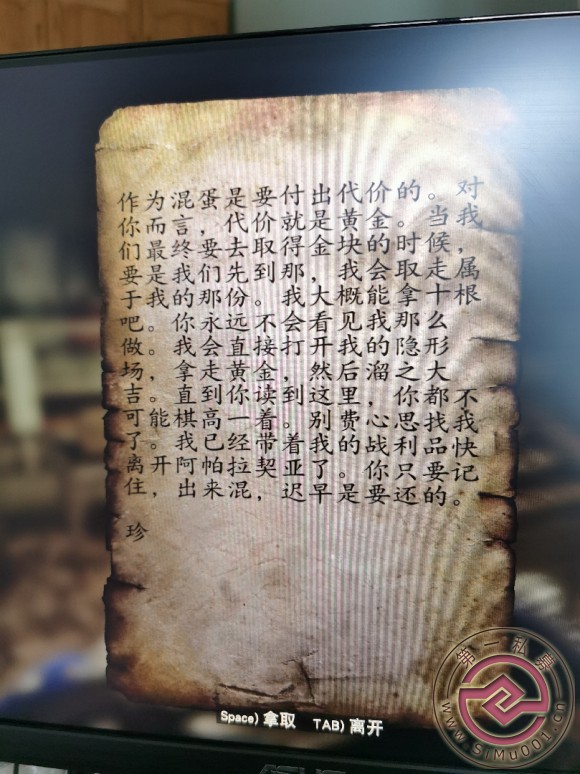 作为混蛋是要付出代价的。对
你而言，代价就是黄金。当我
们最终要去取得金块的时候，
要是我们先到那，我会取走属
于我的那份。我大概能拿十根
吧。你永远不会看见我那么
做。我会直接打开我的隐形
场，拿走黄金，然后溜之大
吉。直到你读到这里，你都不
可能棋高一着。别费心思找我
了。我已经带着我的战利品快
离开阿帕拉契亚了。你只要记
住，出来混，迟早是要还的。
珍
Space) 拿取 TAB) 离开
第一私募
www.SiMu001.cn